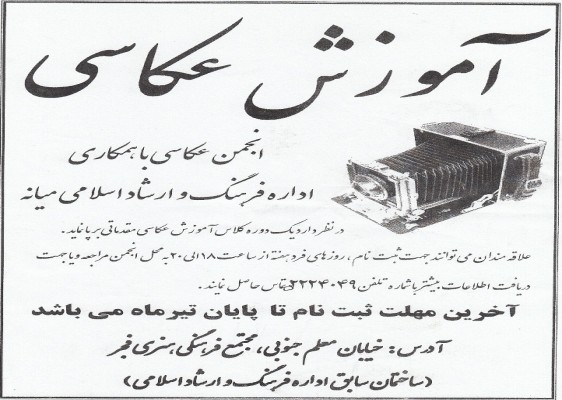 آموزش عکاسی
انجمن عکاسی با همکاری
اداره فرهنگ و ارشاد اسلامی میانه
در نظر دارد یک دوره کلاس آموزش عکاسی مقدماتی برپا نماید.
علاقه مندان می توانند جهت ثبت نام ، روزهای فرد هفته از ساعت ۱۸ الی ۲۰ به محل انجمن مراجعه و یا جهت
دریافت اطلاعات بیشتر با شماره تلفن ۲۲۲۴۰۴۹ تماس حاصل نمایند.
آخرین مهلت ثبت نام تا پایان تیرماه می باشد
آدرس: خیابان معلم جنوبی، مجتمع فرهنگی هنری فجر
(ساختمان سابق اداره فرهنگ و ارشاد اسلامی)